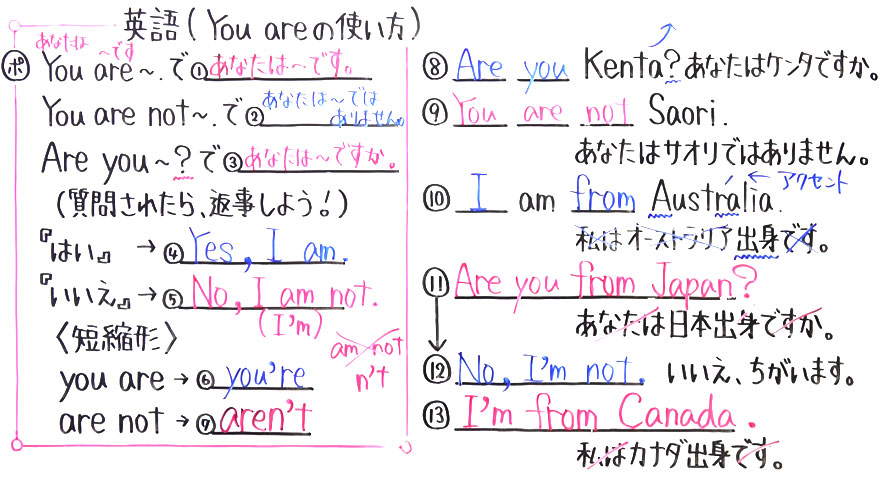 英語(You areの使い方)
あなたは ～です
ポ You are～.で①あなたは～です。
You are not～.で②あなたは～では ありません。
Are you～?で③あなたは～ですか。
(質問されたら、返事しよう!)
『はい』→④Yes, I am.
『いいえ』→⑤No, I am not.
(I'm)
〈短縮形〉
am not
n't
you are→⑥you're
are not→⑦aren't
⑧Are you Kenta?あなたはケンタですか。
⑨You are not Saori.
あなたはサオリではありません。
⑩I am from Australia.
←アクセント
私はオーストラリア出身です。
⑪Are you from Japan?
あなたは日本出身ですか。
⑫No, I'm not. いいえ、ちがいます。
⑬I'm from Canada.
私はカナダ出身です。